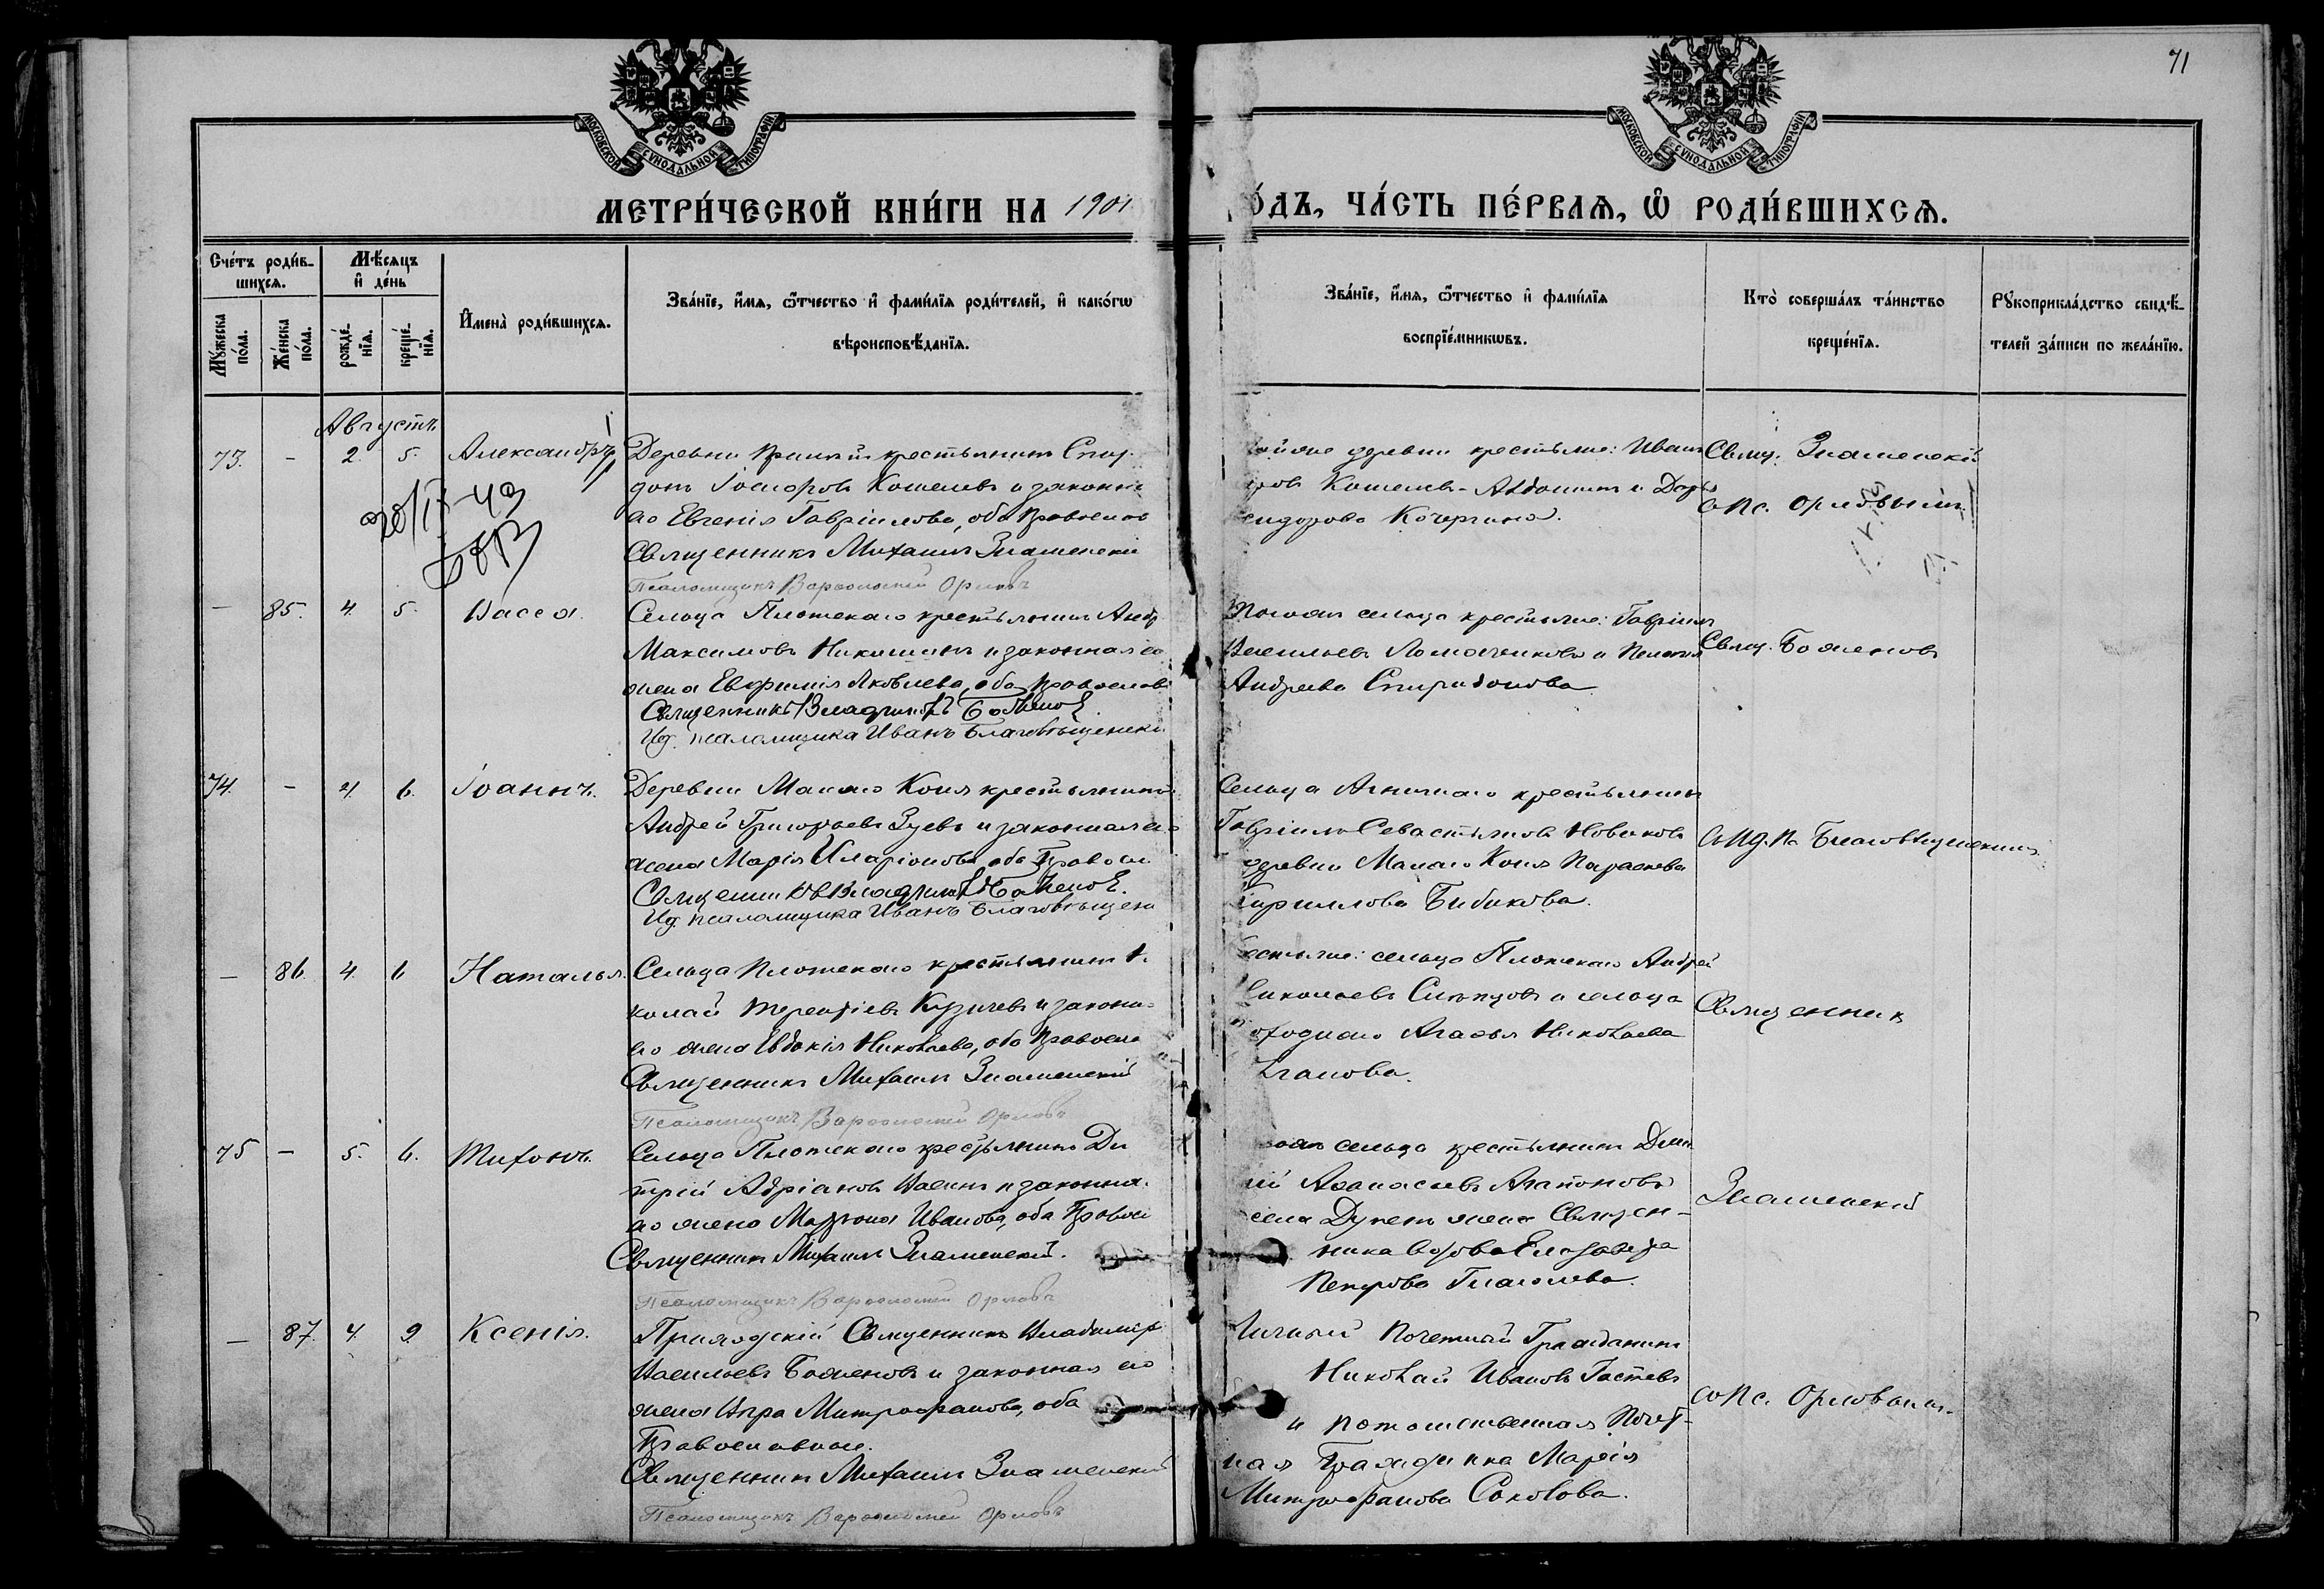 71
МОСКОВСКОЙ СѴНОДАЛЬНОЙ ТИПОГРАФІИ
МОСКОВСКОЙ СѴНОДАЛЬНОЙ ТИПОГРАФІИ
МЕТРИ́ЧЕСКОЙ КНИ́ГИ НА 1901
О́ДЪ, ЧА́СТЬ ПЕ́РВАѦ, Ѽ РОДИ́ВШИХСѦ.
Сче́тъ роди́в-
шихсѧ.
Мꙋ́жеска по́ла.
Же́нска по́ла.
Мѣ́сѧцъ
и҆ де́нь
рожде́-нїѧ.
креще́-нїѧ.
И҆мена̀ роди́вшихсѧ.
Зва́нїе, и҆́мѧ, ѻ҆́тчество и҆ фами́лїѧ роди́телей, и҆ како́гѡ
вѣроисповѣ́данїѧ.
Зва́нїе, и҆́мѧ, ѻ҆́тчество и҆ фами́лїѧ
воспрїе́мникѡвъ.
Кто̀ соверша́лъ та́инство
креще́нїѧ.
Рꙋкоприкла́дство свидѣ́-
телей за́писи по жела́нїю.
Августъ
73. - 2. 5. Александръ
Деревни крестьянинъ Спир
донъ Кошелевъ и законн
его Евгенія Гавріилова, оба Православ
Священникъ Михаилъ Знаменскій
Псаломщикъ Варѳоломей Орловъ
деревни крестьяне: Иванъ
Кошелевъ и Дарья
Кочергина.
Свящ. Знаменскій
съ Пс. Орловымъ
- 85. 4. 5. Васса.
Сельца Плотскаго крестьянинъ Андр
Максимовъ Никишинъ и законная его
жена Евфимія Яковлева, оба Православ
Священникъ Владиміръ Баженовъ
Ид. псаломщика Иванъ Благовѣщенскі
сельца крестьяне: Гавріилъ
Васильевъ и Пелагія
Андреева Спиридонова
Свящ. Баженовъ
74. - 4. 6. Іоаннъ.
Деревни Малаго Коня крестьянинъ
Андрей Григорьевъ Зуевъ и законная его
жена Марія Иларіонова, оба Правосл
Священникъ Владиміръ Баженовъ.
Ид. псаломщика Иванъ Благовѣщен
Сельца крестьянинъ
Гавріилъ Севастьяновъ Новиковъ
деревни Малаго Коня Параскева
Кириллова Бибикова.
съ Ид. Пс. Благовѣщенскимъ
- 86. 4. 6 Наталья.
Сельца Плотскаго крестьянинъ Н
колай Терентіевъ и законн
его жена Евдокія Николаева, оба Правосла
Священникъ Михаилъ Знаменскій
Псаломщикъ Варѳоломей Орловъ
естьяне: сельца Плотскаго Андрей
Николаевъ и сельца
Агафья Николаева
Священник
75 - 5. 6. Тихонъ.
Сельца Плотскаго крестьянинъ Ди
трій Адріановъ и законна
его жена Матрона Иванова, оба Правосл
Священникъ Михаилъ Знаменскій.
Псаломщикъ Варѳоломей Орловъ
сельца крестьянинъ Дими
ій Аѳанасьевъ Агапоновъ
села жена Священ-
ника вдова Елизавета
Петрова Глаголева.
Знаменскій
- 87. 4. 9. Ксенія.
Приходскій Священникъ Владиміръ
Васильевъ Баженовъ и законная его
жена Митрофанова, оба
Православные.
Священникъ Михаилъ Знаменскій
Псаломщикъ Варѳоломей Орловъ
Личный Почетный Гражданинъ
Николай Ивановъ Гастевъ
и потомственная Почет-
ная Гражданка Марія
Митрофанова Соколова.
съ Пс. Орловымъ.